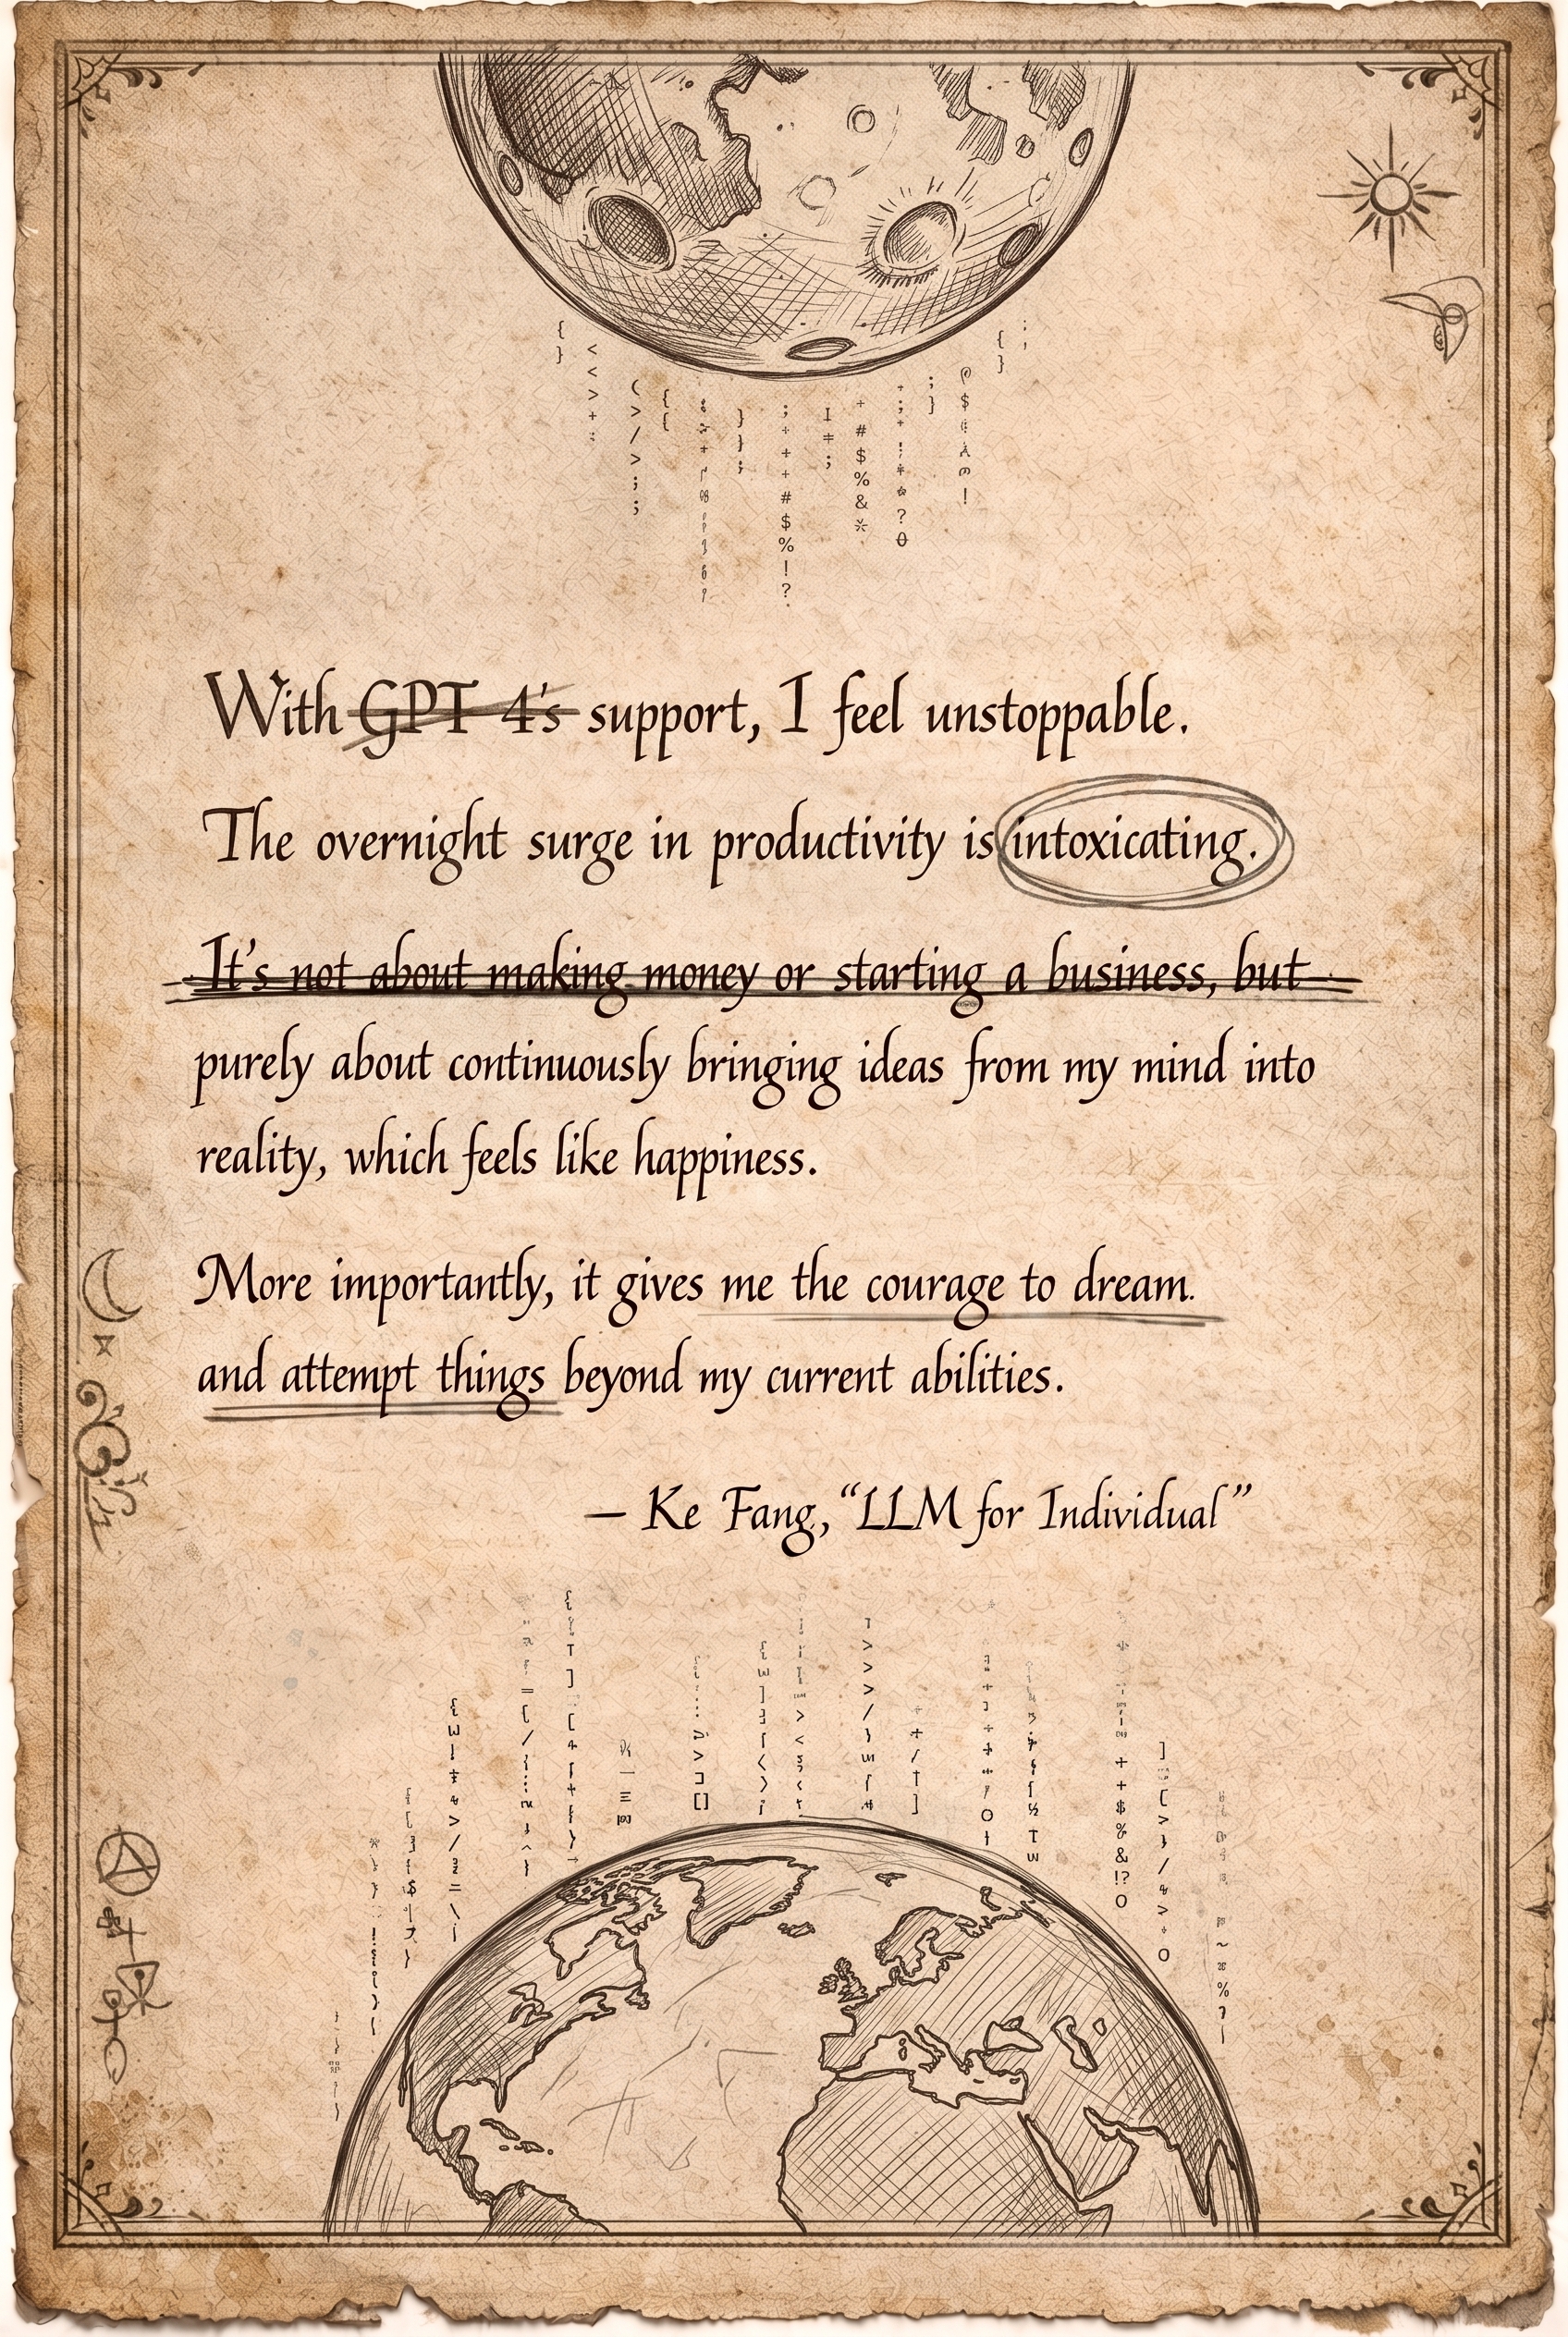 With GPT 4's support, I feel unstoppable.
The overnight surge in productivity is intoxicating.
It's not about making money or starting a business, but
purely about continuously bringing ideas from my mind into
reality, which feels like happiness.
More importantly, it gives me the courage to dream.
and attempt things beyond my current abilities.
— Ke Fang, “LLM for Individual”